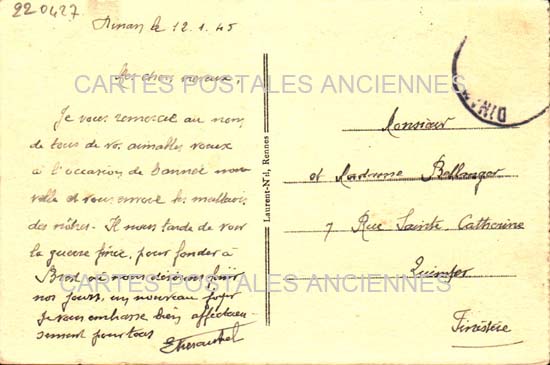 220427
Dinan le 12.1.45
Mes chers neveux,
Je vous remercie au nom
de tous de vos aimables vœux
à l'occasion de l'année nou
velle et vous envoie les meilleurs
des nôtres. Il nous tarde de voir
la guerre finie, pour fonder à
Brest où nous désirons finir
nos jours, un nouveau foyer
Je vous embrasse bien affectueu-
sement pour tous
CARTES POSTALES ANCIENNES
CARTES POSTALES ANCIENNES
Laurent-Nel, Rennes
DINAN
Monsieur
et Madame Bellanger
7 Rue Sainte Catherine
Quimper
Finistère